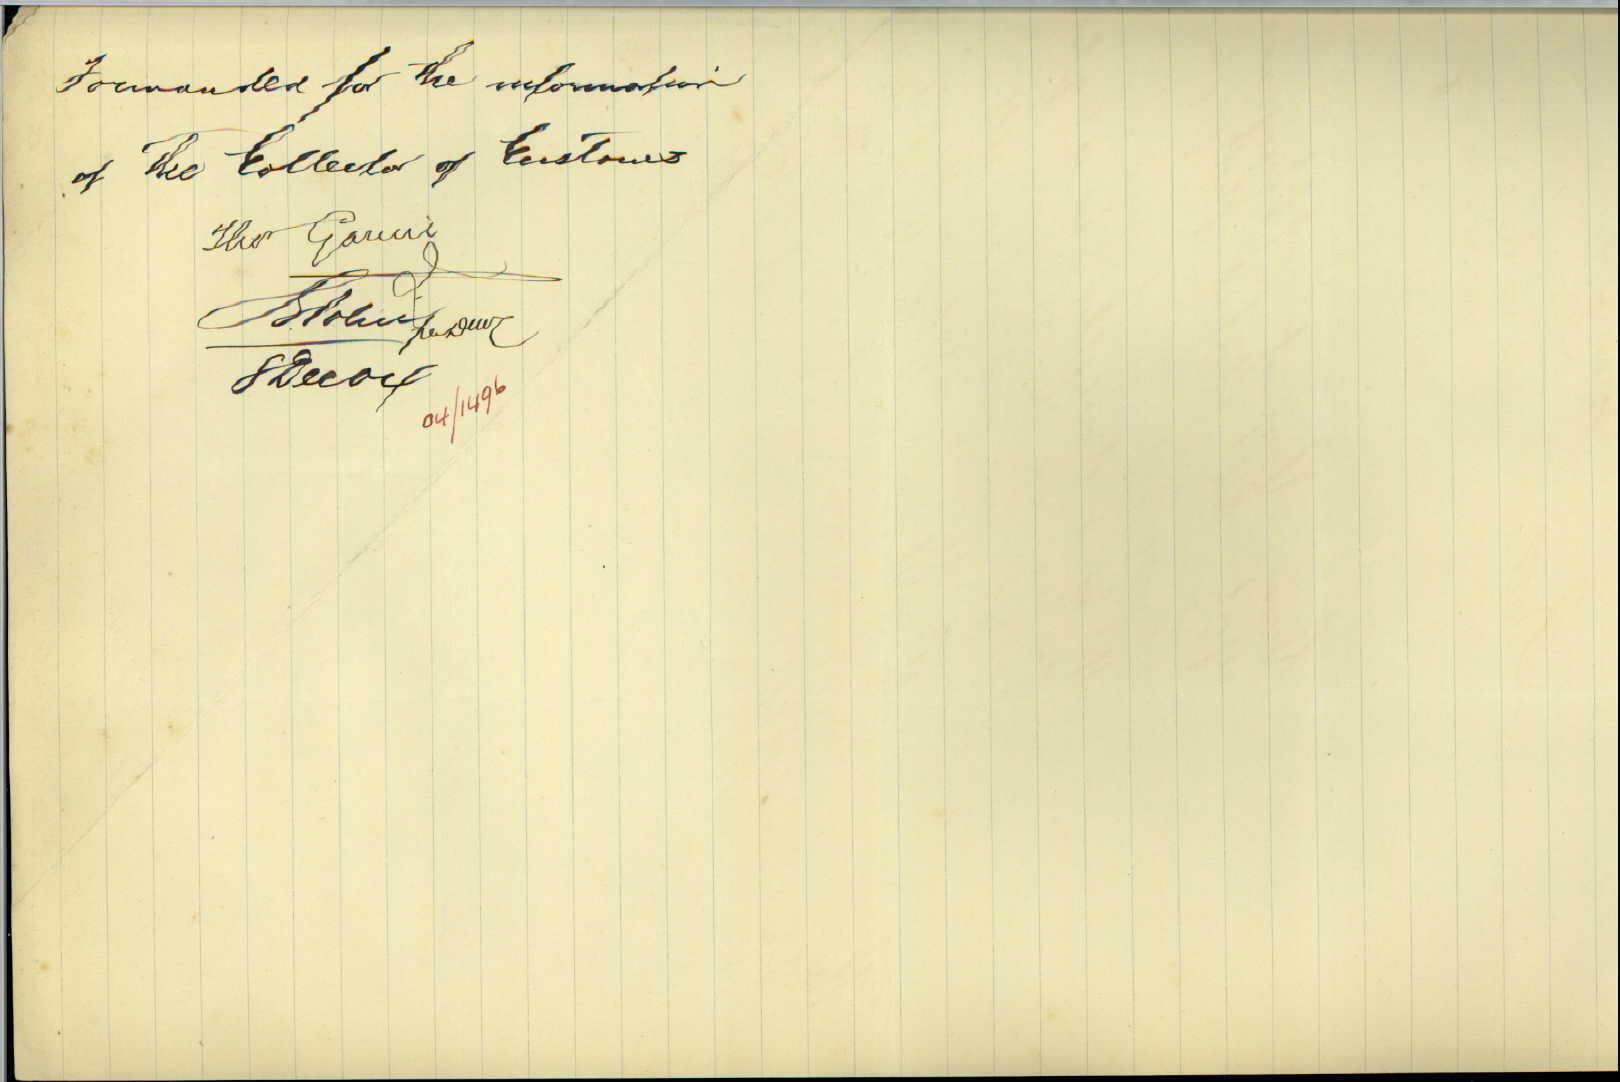 Forwarded for the information
of The Collector of Customs
Thos Garvin
04/1496